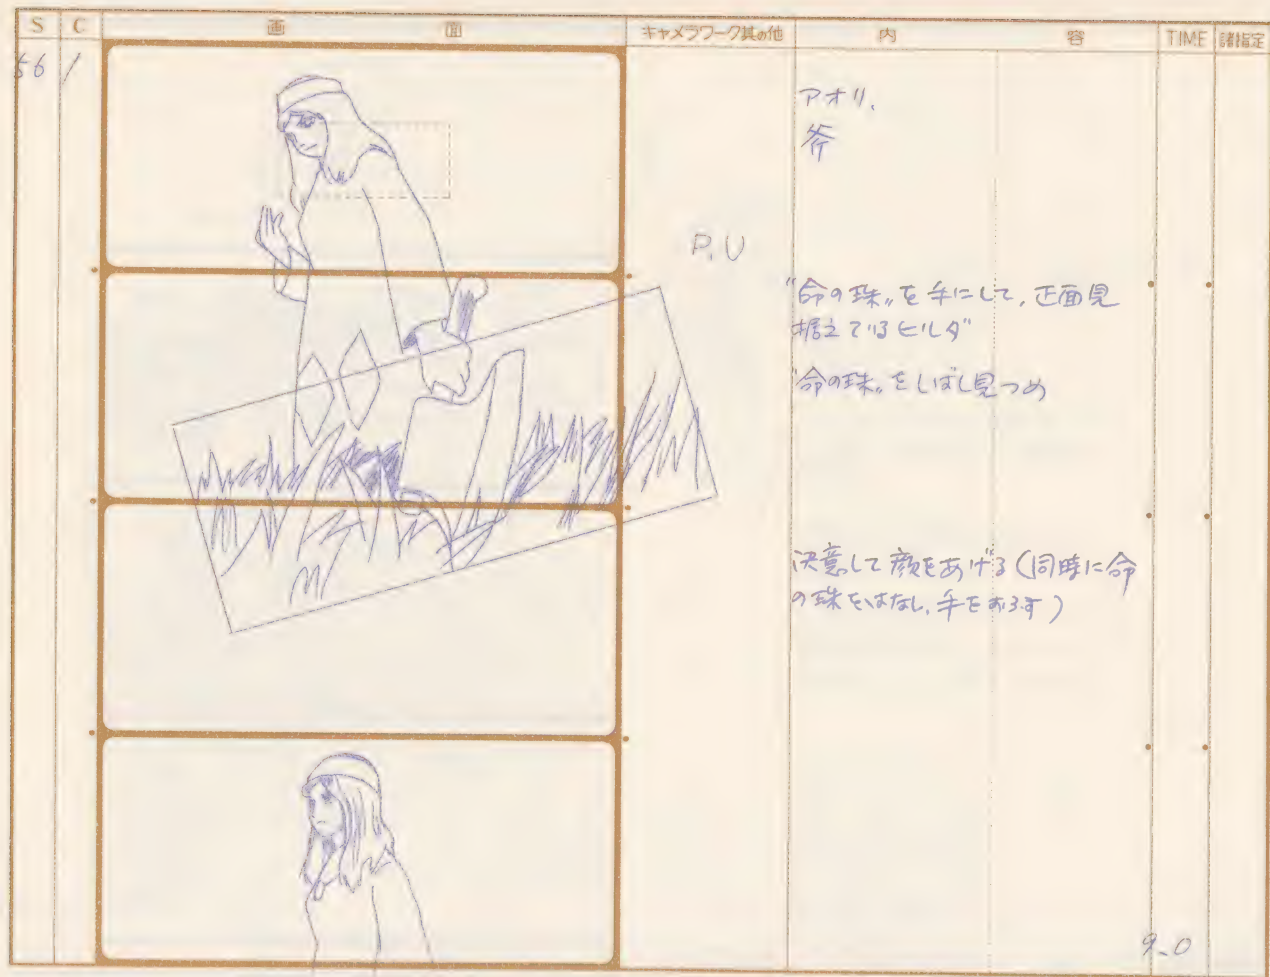 S C 画 面 キャメラワーク其の他 内 容 TIME 諸指定
56 1
アオリ、
斧
P.U
"命の珠〟を手にして、正面見
据えているヒルダ
"命の珠〟をしばし見つめ
決意して顔をあげる(同時に命
の珠をはなし、手をおろす)
9-0